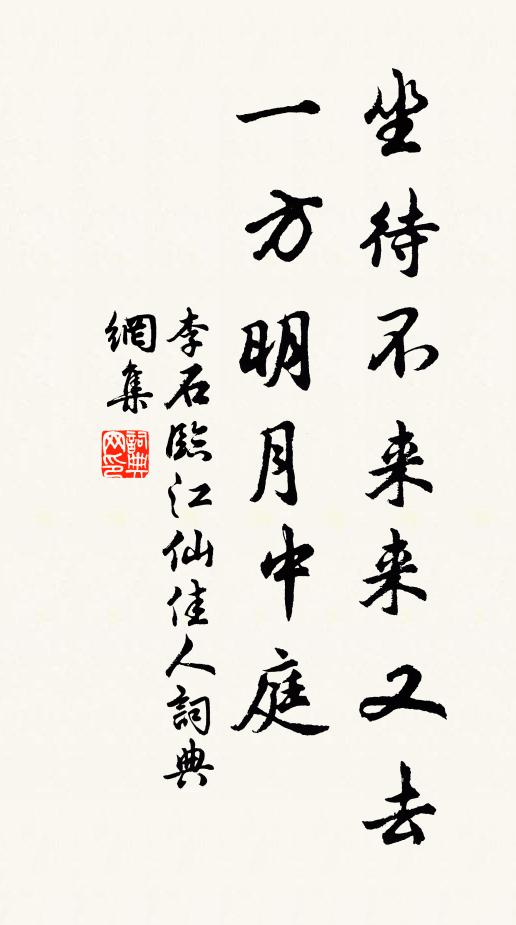 坐待不来来又去
一方明月中庭
李石臨江仙佳人詞典
網集
詞典网印